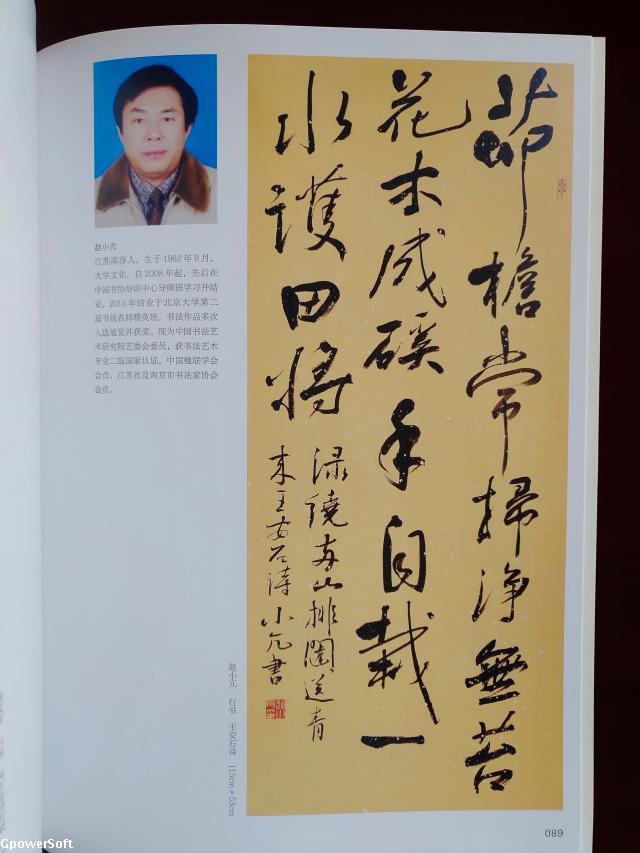 赵小亢
江苏高淳人，生于1962年9月，
大学文化。自2008年起，先后在
中国书协培训中心导师班学习并结
业，2015年结业于北京大学第二
届书法名师精英班。书法作品多次
入选展览并获奖。现为中国书法艺
术研究院艺委会委员，获书法艺术
专业二级国家认证。中国楹联学会
会员，江苏省及南京市书法家协会
会员。
茆檐常掃浄無苔
花木成磎手自栽一
水護田將
渌繞两山排闥送青
来王安石詩 小亢書
赵小亢 行书 王安石诗 115cm×53cm
089
GpowerSoft